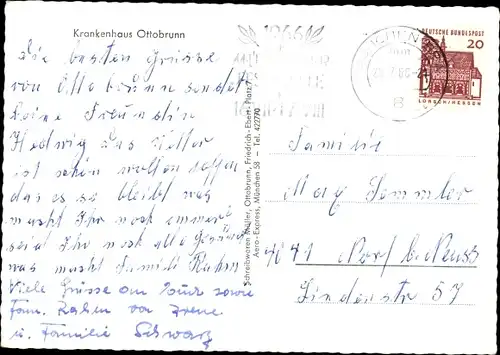 Krankenhaus Ottobrunn
die besten Grüsse
von Ottobrunn sendet
deine Freundin
Hedwig das Wetter
ist schön wollen hoffen
das es so bleibt was
macht Ihr noch immer
seid Ihr noch alle Gesund
was macht Familie Kuhn
Viele Grüsse an Euch sowie
Fam. von Irene
u. Familie Schwarz
Schreibwaren Müller, Ottobrunn, Friedrich-Ebert-Platz 1
Aero-Express, München 58 - Tel. 422770
1966
MÜNCHEN
DEUTSCHE BUNDESPOST
20
LORSCH/HESSEN
Familie
Max Semmler
4041 Norf b. Neuss
Lindenstr 57